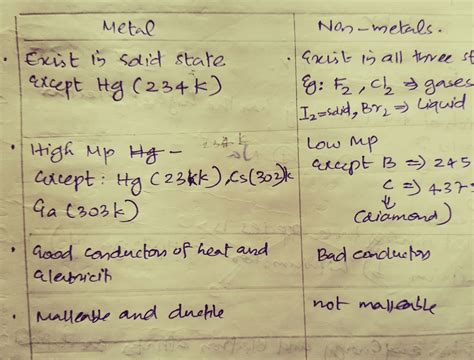 Metal
Non-metals.
• Exist in solid state
except Hg (234k)
• Exist in all three st
Eg: F2, Cl2 ⇒ gases
I2=solid, Br2 ⇒ Liquid
• High Mp Hg -
except: Hg (234k), Cs(302)k
Ga (303k)
Low Mp
except B ⇒ 245
C ⇒ 437
↓
(diamond)
• Good conductors of heat and
electricity
Bad conductors
• Malleable and ductile
not malleable